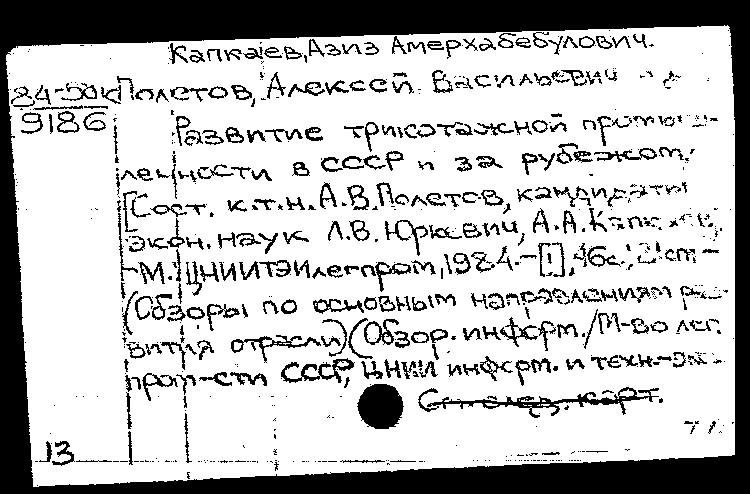 Капкаев, Азиз Амерхабебулович.
84-50к Полетов, Алексей Васильевич
9186
Развитие трикотажной промыш-
ленности в СССР и за рубежом.
[Сост. к.т.н. А.В. Полетов, кандидаты
экон. наук Л.В. Юркевич, А.А. Капкаев].
-М.: ЦНИИТЭИлегпром, 1984.-[1], 46с.; 21см-
(Обзоры по основным направлениям раз-
вития отрасли) (Обзор. информ./М-во лег.
пром-сти СССР, ЦНИИ информ. и техн.-эк.
См. след. карт.
13